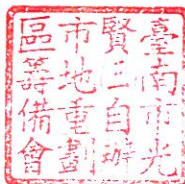 臺南市光
賢三自辦
市地重劃
區籌備會